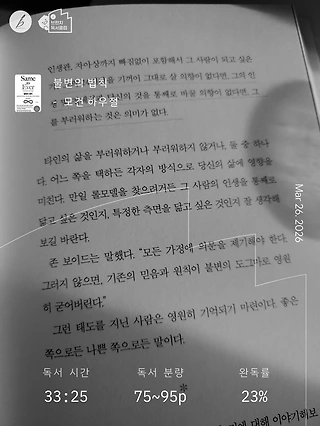 북한끼
독서모임
인생관, 자아상까지 빠짐없이 포함해서 그 사람이 되고 싶은
기꺼이 그대로 살 의향이 없다면, 그의 인
것을 통째로 바꿀 의향이 없다면, 그
를 부러워하는 것은 의미가 없다.
Same
as
Ever
불변의 법칙
모건 하우절
타인의 삶을 부러워하거나 부러워하지 않거나, 둘 중 하나
다. 어느 쪽을 택하든 각자의 방식으로 당신의 삶에 영향을
미친다. 만일 롤모델을 찾으려거든 그 사람의 인생을 통째로
닮고 싶은 것인지, 특정한 측면을 닮고 싶은 것인지 잘 생각해
보길 바란다.
존 보이드는 말했다. “모든 가정에 의문을 제기해야 한다.
그러지 않으면, 기존의 믿음과 원칙이 불변의 도그마로 영원
히 굳어버린다.”
그런 태도를 지닌 사람은 영원히 기억되기 마련이다. 좋은
쪽으로든 나쁜 쪽으로든 말이다.
Mar 26. 2026
독서 시간
33:25
독서 분량
75~95p
완독률
23%
*
에 대해 이야기해보